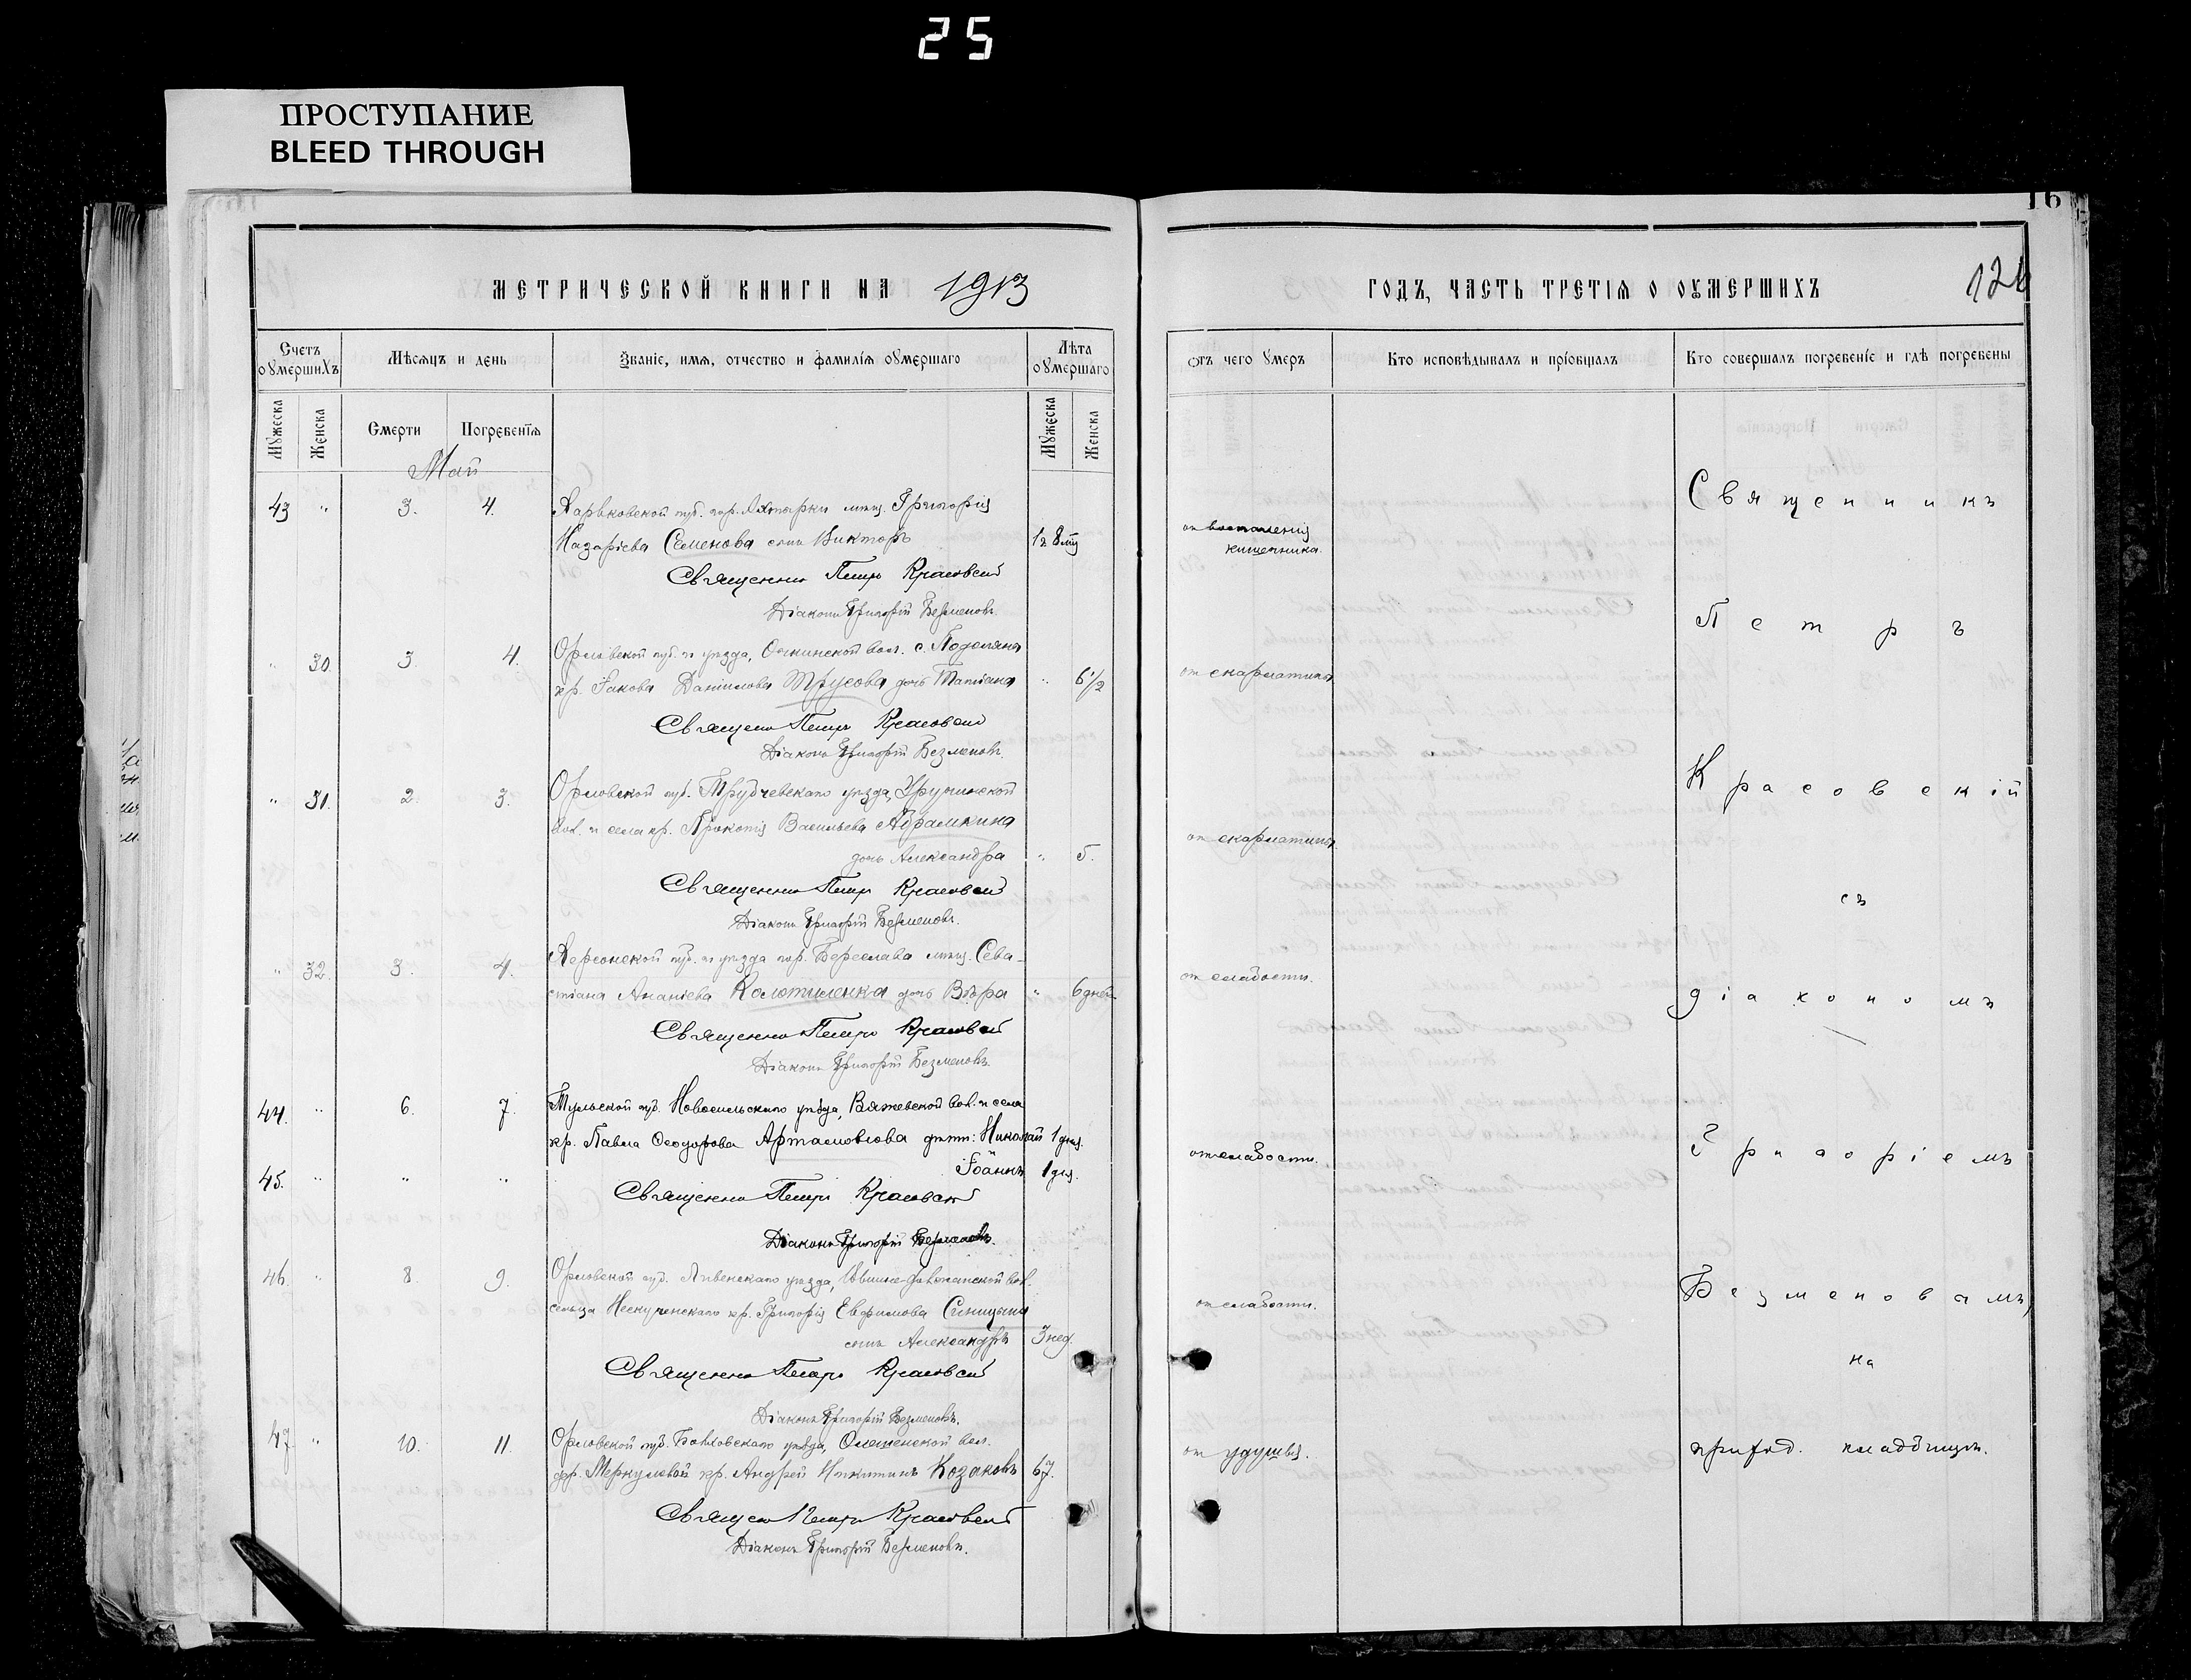 25
ПРОСТУПАНИЕ
BLEED THROUGH
16
МЕТРИЧЕСКОЙ КНИГИ НА 1913
ГОДЪ, ЧАСТЬ ТРЕТІЯ О ОУМЕРШИХЪ
126
Счетъ оумершихъ
Мѣсяцъ и день
Званіе, имя, отчество и фамилія оумершаго
Лѣта оумершаго
отъ чего умеръ
Кто исповѣдывалъ и пріобщалъ
Кто совершалъ погребеніе и гдѣ погребены
Мужеска
Женска
Смерти
Погребенія
Мужеска
Женска
Май
43 " 3. 4. Харьковской губ. гор. Ахтырки мѣщ. Григорія
Назаріева Семенова сынъ Викторъ 1 г. 8 м. от воспаленія
кишечника.
Священник Петръ Красовскій
Діаконъ Григорій Безменовъ.
" 30. 3. 4. Орловской губ. и уѣзда, с. Подоляна
кр. Іакова Даніилова Трусова дочь Татіана " 6 1/2 от скарлатины
Священ Петръ Красовскій
Діаконъ Григорій Безменовъ.
" 31. 2. 3. Орловской губ. Трубчевскаго уѣзда,
вол. и села кр. Прокопія Васильева Абрамкина
дочь Александра " 5. от скарлатины
Священник Петръ Красовскій
Діаконъ Григорій Безменовъ.
" 32. 3. 4. Херсонской губ. и уѣзда гор. Береслава мѣщ. Сева-
стіана Ананіева Колотиленка дочь Вѣра " 6 дней от слабости.
Священник Петръ Красовскій
Діаконъ Григорій Безменовъ.
44. " 6. 7. Тульской губ. Новосильскаго уѣзда, Вяжевской вол. и села
кр. Павла Ѳеодорова Артамонова дѣти: Николай 1 дня. от слабости.
45. " " " Іоаннъ 1 дня.
Священник Петръ Красовскій
Діаконъ Григорій Безменовъ.
46. " 8. 9. Орловской губ. Ливенскаго уѣзда, вол.
сельца Нескученскаго кр. Григорія Евфимова Синицына
сынъ Александръ 3 нед. от слабости.
Священник Петръ Красовскій
Діаконъ Григорій Безменовъ.
47. " 10. 11. Орловской губ. Болховскаго уѣзда, вол.
дер. Меркуловой кр. Андрей Никитинъ Козаковъ 67. от удушья.
Священ Петръ Красовскій
Діаконъ Григорій Безменовъ.
Священникъ
Петръ
Красовскій
съ
діакономъ
Григоріемъ
Безменовымъ
на
приход. кладбищѣ.